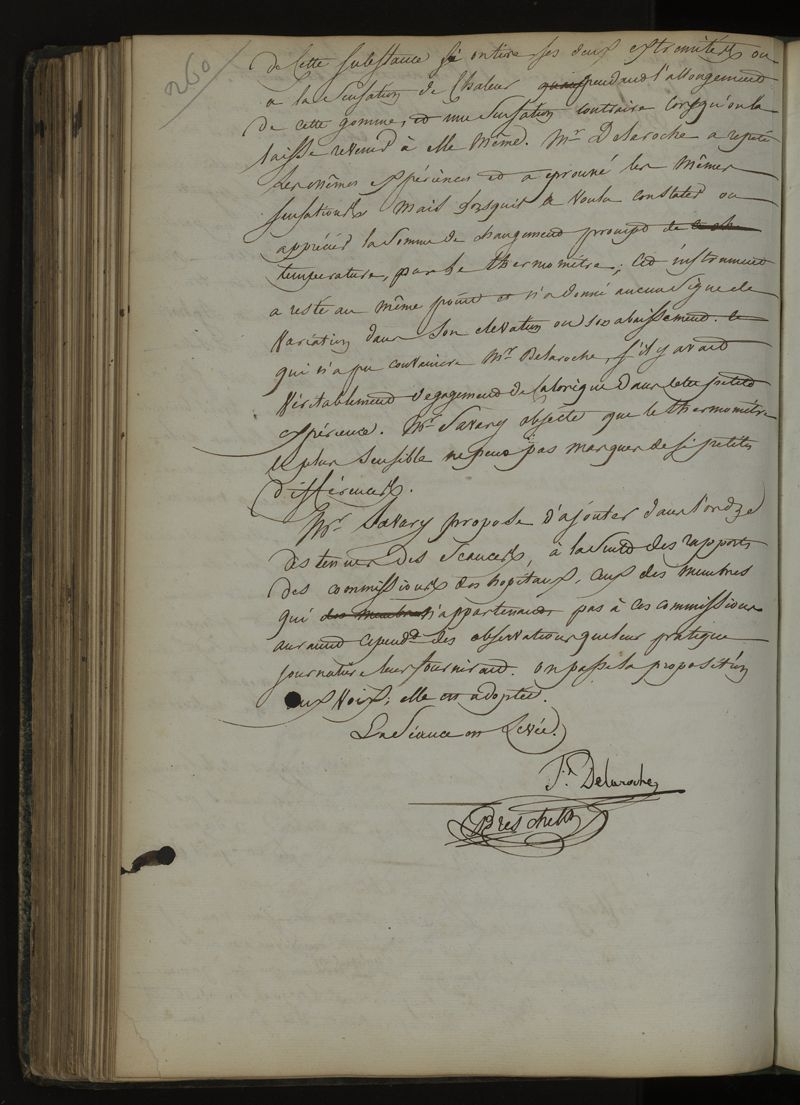 260
de Cette substance si on tire ses deux extrémités on
a la sensation de Chaleur pendant l'allongement
de cette gomme, et une sensation contraire lorsqu'on la
laisse revenir à elle même. Mr. Delaroche a repeté
les mêmes expériences et a eprouvé les mêmes
sensations mais lorsquil a voulu constater ou
apprécier la somme de changement prompt de
température, par le thermomètre; cet instrument
a resté au même point et n'a donné aucun signe de
variation dans son elevation ou son abaissement. ce
qui n'a pu convaincre Mr. Delaroche, s'il y avait
véritablement dégagement de calorique dans cette petite
expérience. Mr. Savary objecte que le thermomètre
le plus sensible ne peut pas marquer de si petites
différences.
Mr. Savary propose d'ajouter dans l'ordre
des tenues des seances, à la suite des rapports
des commissions des hopitaux, ceux des membres
qui des membres n'appartenant pas à ces commissions
auraient cepend.t des observations que leur pratique
journalière leur fournirait. on passe la proposition
aux voix; elle est adoptée.
La Séance est Levée.
F. Delaroche
Breschet